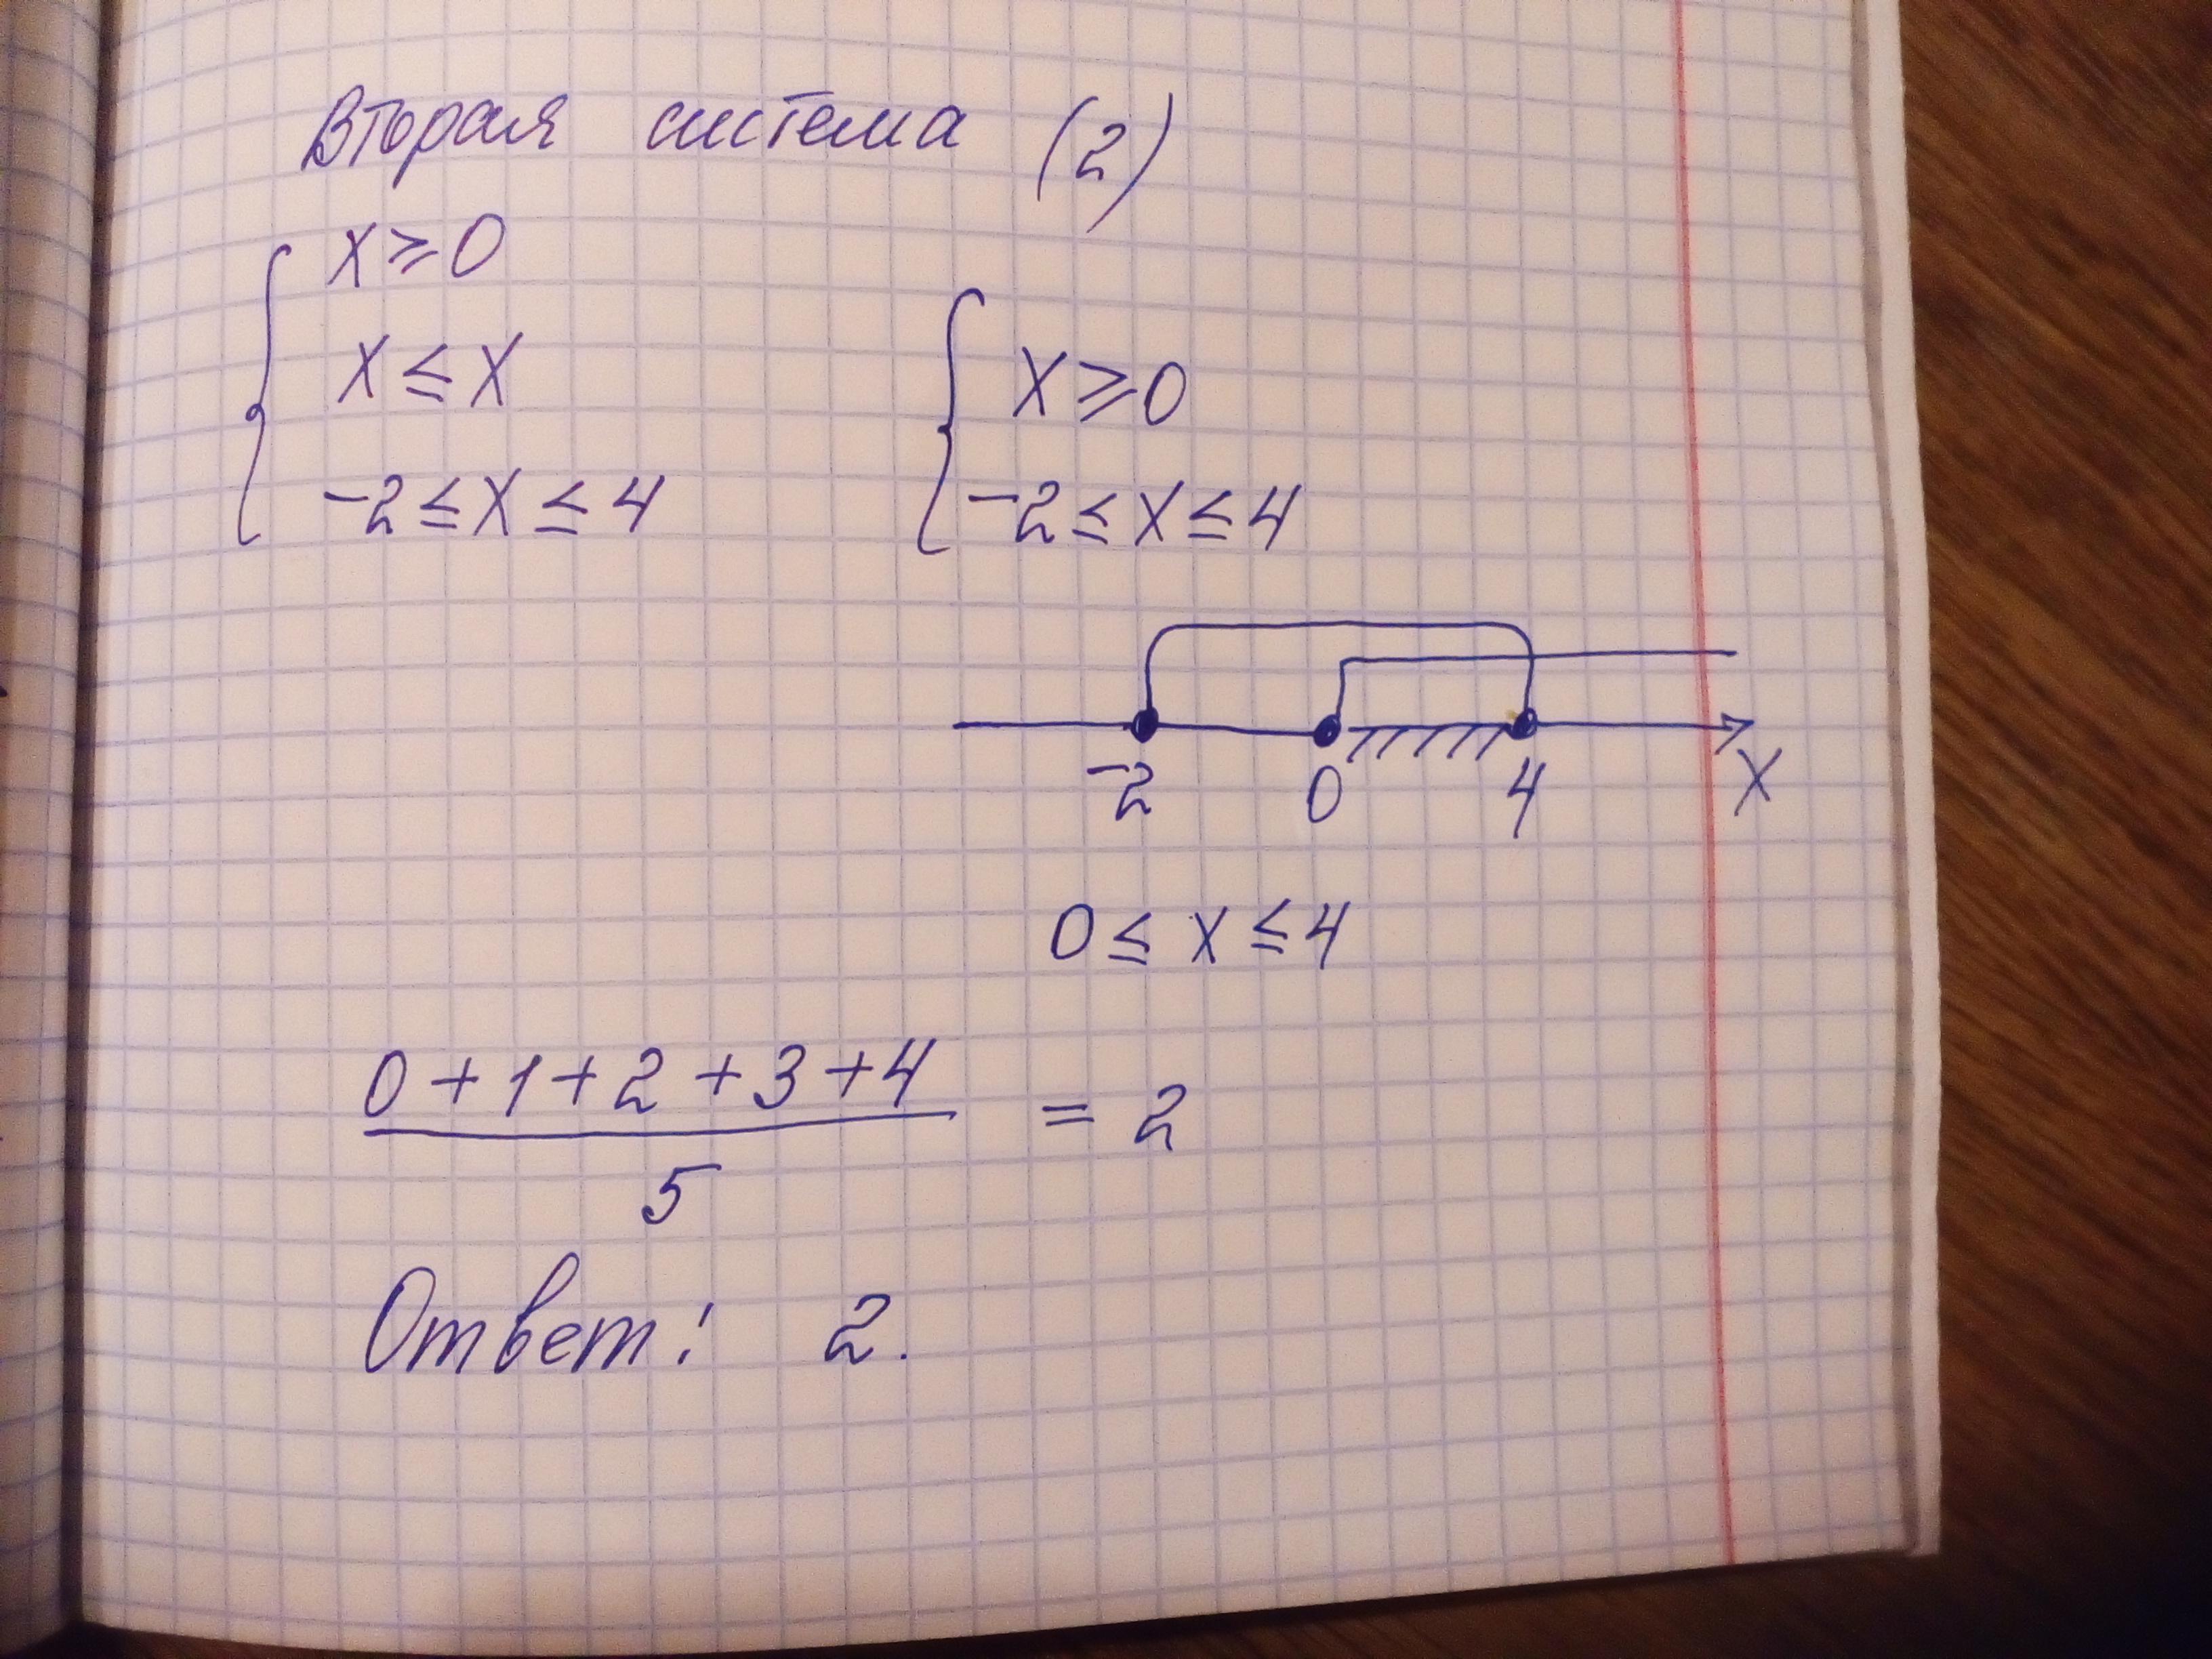 Вторая система (2)
x ≥ 0
x ≤ x
-2 ≤ x ≤ 4
x ≥ 0
-2 ≤ x ≤ 4
-2 0 4 x
0 ≤ x ≤ 4
0 + 1 + 2 + 3 + 4
= 2
5
Ответ: 2.